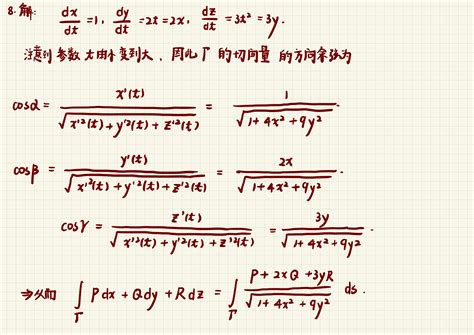 8. 解: dx/dt = 1, dy/dt = 2t = 2x, dz/dt = 3t² = 3y.
注意到 参数 t 由小变到大, 因此 Γ 的切向量 的方向余弦为
cosα = x'(t) / √(x'²(t) + y'²(t) + z'²(t)) = 1 / √(1 + 4x² + 9y²).
cosβ = y'(t) / √(x'²(t) + y'²(t) + z'²(t)) = 2x / √(1 + 4x² + 9y²)
cosγ = z'(t) / √(x'²(t) + y'²(t) + z'²(t)) = 3y / √(1 + 4x² + 9y²)
⇒ 从而 ∫_Γ Pdx + Qdy + Rdz = ∫_Γ (P + 2xQ + 3yR) / √(1 + 4x² + 9y²) ds.